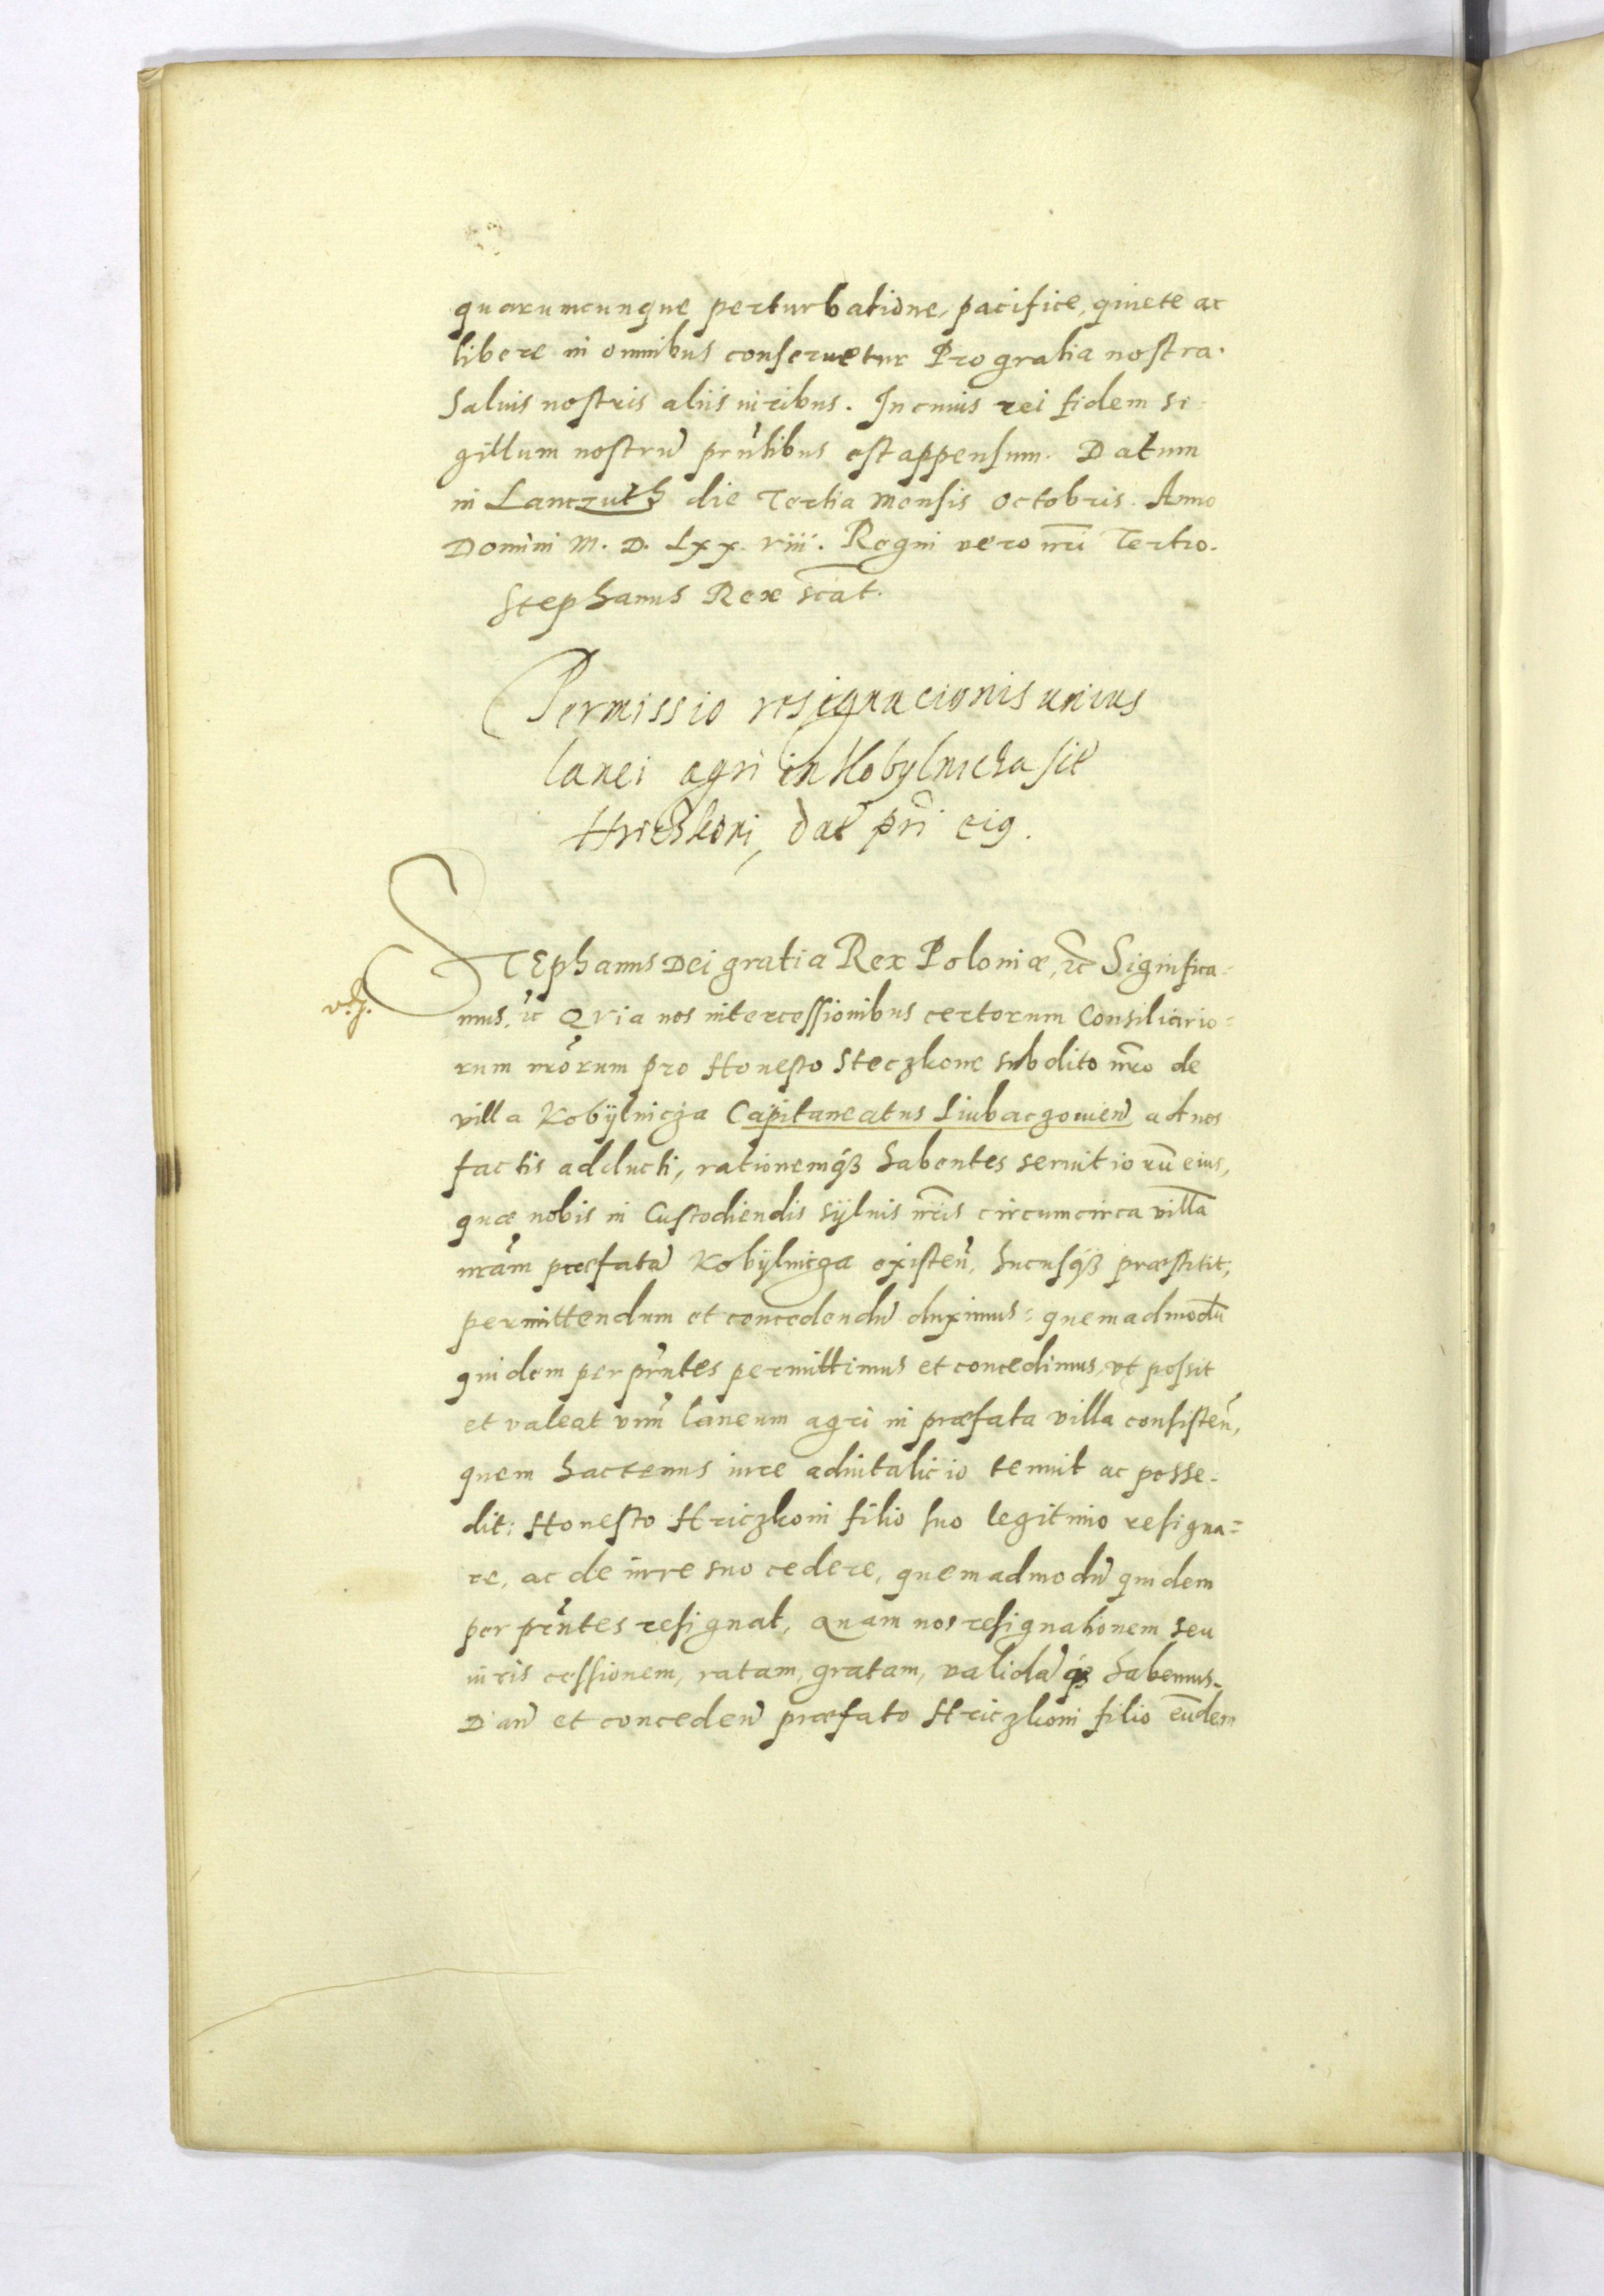 quorumcunque perturbatione, pacifice, quiete ac
libere in omnibus conseruetur Pro gratia nostra.
Saluis nostris aliis iuribus. In cuius rei fidem si-
gillum nostrũ prñtibus est appensum. Datum
in Lanczuth die Tertia Mensis Octobris. Anno
Domini M. D. Lxx. viii. Regni vero nrĩ Tertio.
Stephanus Rex scãt.
Permissio resignacionis unius
lanei agri in Kobylnicza sit̃
Hriczkoni, dat̃ pri eig.
STEphanus Dei gratia Rex Poloniæ, ꝛc̃ Significa-
mus, ꝛc̃ Qvia nos intercessionibus certorum Consiliario=
rum nrõrum pro Honesto Steczkone subdito nr̃o de
villa Kobÿlnicza Capitaneatus Liubaczouien̄ ad nos
factis adducti, rationemq́ꝫ habentes seruitiorũ eius,
quæ nobis in Custodiendis sÿluis nr̃is circumcirca villã
nrãm præfatã Kobÿlnicza existen̄, hucusq́ꝫ præstitit,
permittendum et concedendũ duximus: quemadmodũ
quidem per prñtes permittimus et concedimus, vt possit
et valeat vnũ laneum agri in præfata villa consisten̄,
quem hactenus iure aduitalicio tenuit ac posse-
dit: Honesto Hriczkoni filio suo legitimo resigna=
re, ac de iure suo cedere, quemadmodũ quidem
per prñtes resignat, Quam nos resignationem seu
iuris cessionem, ratam, gratam, validã q́ꝫ habemus.
Dan̄ et conceden̄ præfato Hriczkoni filio eũdem